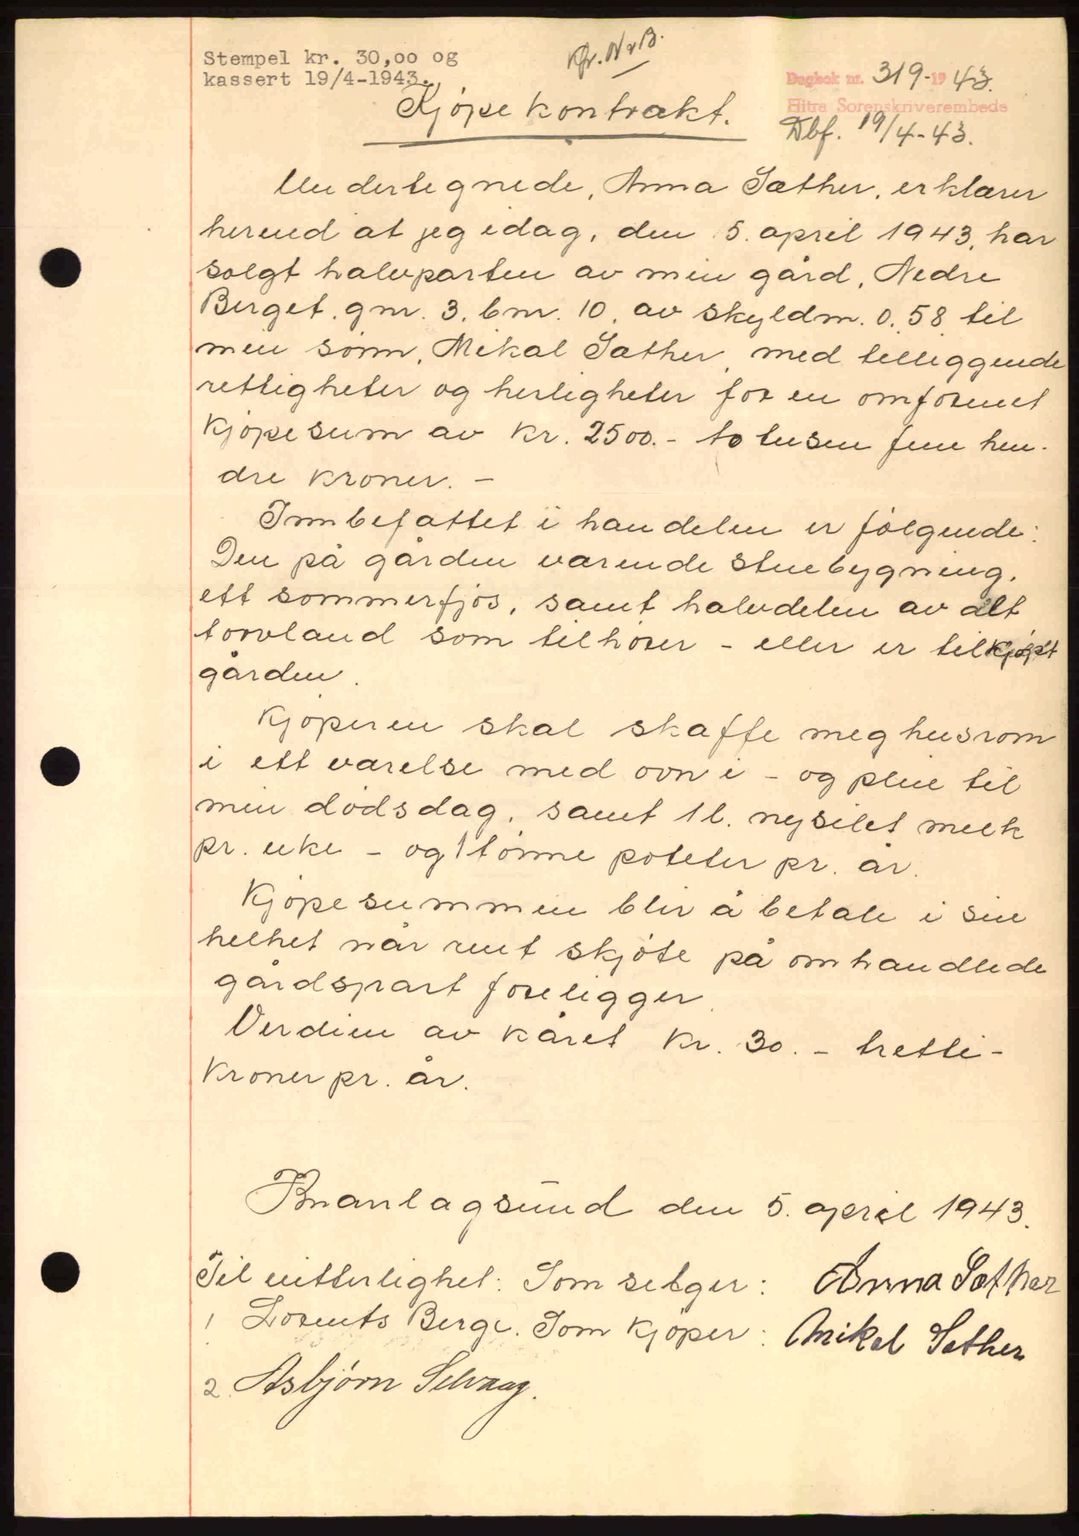 Stempel kr. 30,00 og
kassert 19/4-1943.
Kfr. NoB.
Dagbok nr. 319-1943.
Hitra Sorenskriverembede
Dbf. 19/4-43.
Kjøpekontrakt.
Undertegnede, Anna Sæther, erklærer
herved at jeg idag, den 5. april 1943, har
solgt halvparten av min gård, Nedre
Berget, gnr. 3. bnr. 10, av skyldm. 0,58 til
min sønn, Mikal Sæther, med tilliggende
rettigheter og herligheter for en omforenet
kjøpesum av kr. 2500.- to tusen fem hun-
dre kroner. -
Innbefattet i handelen er følgende:
Den på gården værende stuebygning,
ett sommerfjøs, samt halvdelen av alt
torvland som tilhører - eller er tilkjøpt
gården.
Kjøperen skal skaffe meg husrom
i ett værelse med ovn i - og pleie til
min dødsdag, samt 1 l. nysilet melk
pr. uke - og 1 tønne poteter pr. år.
Kjøpesummen blir å betale i sin
helhet når rent skjøte på omhandlede
gårdspart foreligger.
Verdien av kåret kr. 30. - tretti -
kroner pr. år.
Knarlagsund den 5. april 1943.
Til vitterlighet: Som selger: Anna Sæther
1 Lorents Berge. Som kjøper: Mikal Sæther
2. Asbjørn Selvaag.